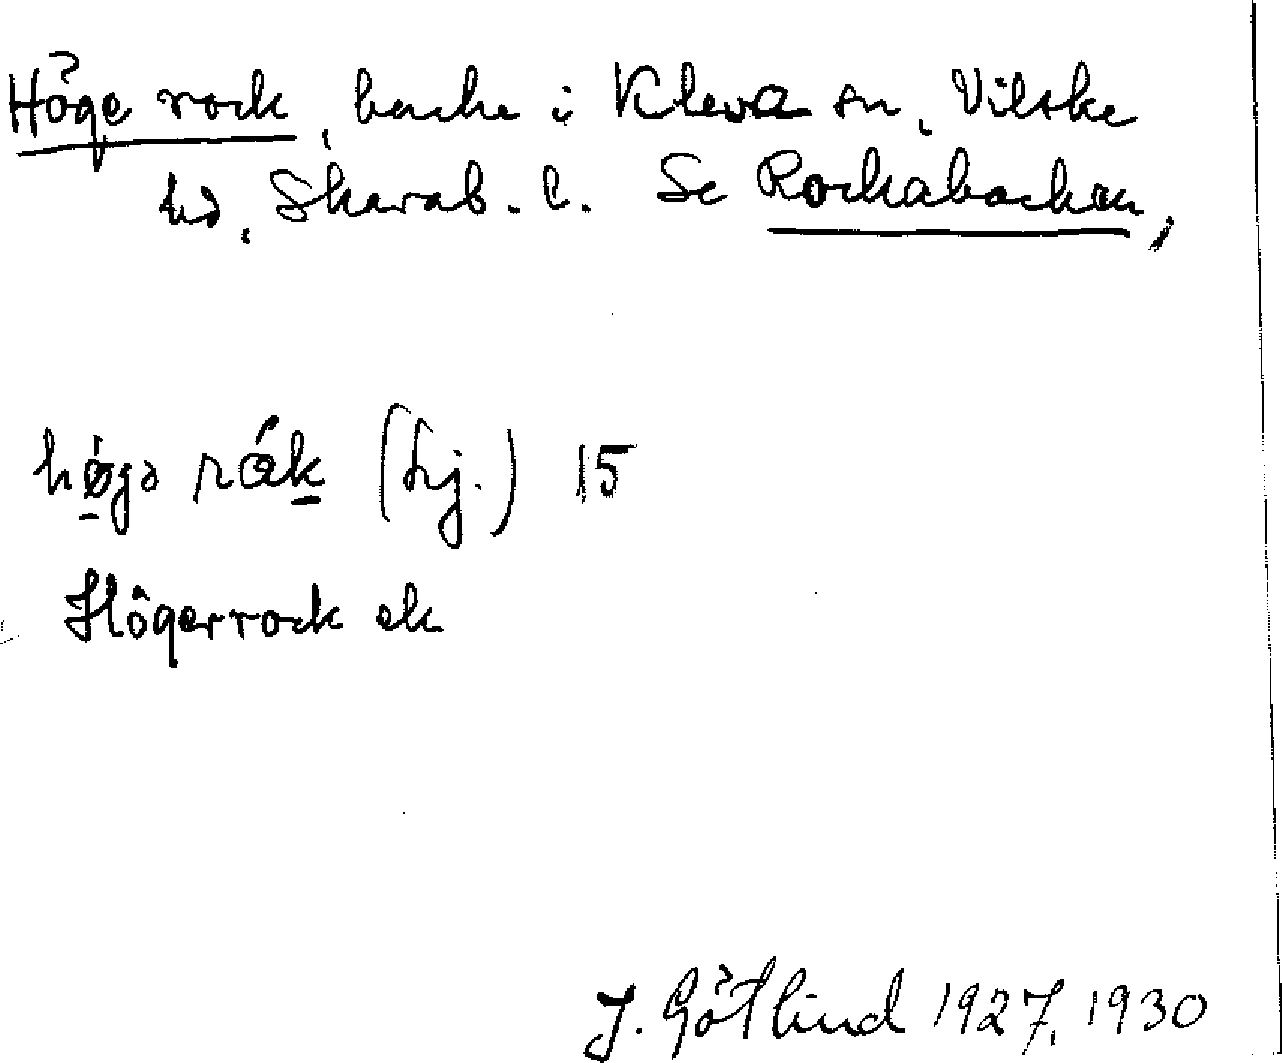 Höge rock, backe i Kleva sn, Vilske
hd, Skarab. l. Se Rockabacken,
hø̀gə rák (hj.) 15
Högerrock ek
J. Götlind 1927, 1930